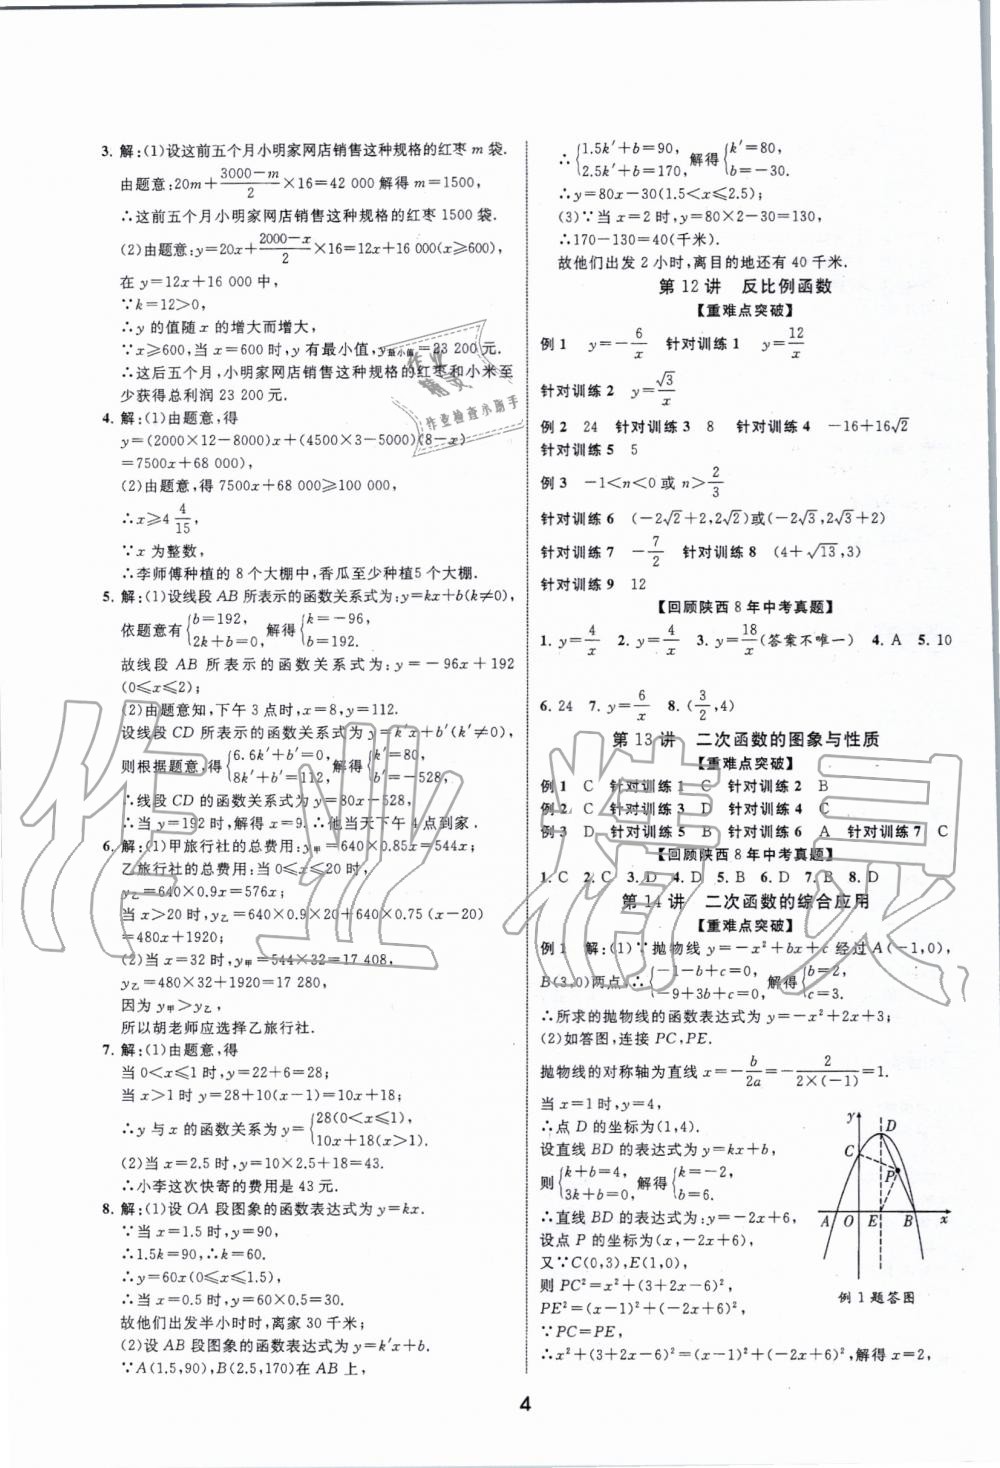 3. 解:(1)设这前五个月小明家网店销售这种规格的红枣 m 袋.
由题意:20m+(3000-m)/2×16=42 000 解得 m=1500,
∴这前五个月小明家网店销售这种规格的红枣 1500 袋.
(2)由题意:y=20x+(2000-x)/2×16=12x+16 000(x≥600),
在 y=12x+16 000 中,
∵k=12>0,
∴y 的值随 x 的增大而增大.
∵x≥600,当 x=600 时,y 有最小值,y最小值=23 200 元.
∴这后五个月,小明家网店销售这种规格的红枣和小米至
少获得总利润 23 200 元.
4. 解:(1)由题意,得
y=(2000×12-8000)x+(4500×3-5000)(8-x)
=7500x+68 000,
(2)由题意,得 7500x+68 000≥100 000,
∴x≥4 4/15,
∵x 为整数,
∴李师傅种植的 8 个大棚中,香瓜至少种植5 个大棚.
5. 解:(1)设线段 AB 所表示的函数关系式为:y=kx+b(k≠0),
依题意有{b=192, 2k+b=0, 解得{k=-96, b=192.
故线段 AB 所表示的函数关系式为:y=-96x+192
(0≤x≤2);
(2)由题意知,下午 3 点时,x=8,y=112.
设线段 CD 所表示的函数关系式为 y=k′x+b′(k′≠0),
则根据题意,得{6.6k′+b′=0, 8k′+b′=112, 解得{k′=80, b′=-528,
∴线段 CD 的函数关系式为 y=80x-528,
∴当 y=192 时,解得 x=9. ∴他当天下午 4 点到家.
6. 解:(1)甲旅行社的总费用:y甲=640×0.85x=544x;
乙旅行社的总费用:当 0≤x≤20 时,
y乙=640×0.9x=576x;
当 x>20 时,y乙=640×0.9×20+640×0.75(x-20)
=480x+1920;
(2)当 x=32 时,y甲=544×32=17 408,
y乙=480×32+1920=17 280,
因为 y甲>y乙,
所以胡老师应选择乙旅行社.
7. 解:(1)由题意,得
当 0<x≤1 时,y=22+6=28;
当 x>1 时 y=28+10(x-1)=10x+18;
∴y 与 x 的函数关系为 y={28(0<x≤1), 10x+18(x>1).
(2)当 x=2.5 时,y=10×2.5+18=43.
∴小李这次快寄的费用是 43 元.
8. 解:(1)设 OA 段图象的函数表达式为 y=kx.
∵当 x=1.5 时,y=90,
∴1.5k=90,∴k=60.
∴y=60x(0≤x≤1.5),
∴当 x=0.5 时,y=60×0.5=30.
故他们出发半小时时,离家 30 千米;
(2)设 AB 段图象的函数表达式为 y=k′x+b.
∵A(1.5,90),B(2.5,170)在 AB 上,
∴{1.5k′+b=90, 2.5k′+b=170, 解得{k′=80, b=-30.
∴y=80x-30(1.5<x≤2.5);
(3)∵当 x=2 时,y=80×2-30=130,
∴170-130=40(千米).
故他们出发 2 小时,离目的地还有 40 千米.
第 12 讲 反比例函数
【重难点突破】
例 1 y=-6/x 针对训练 1 y=12/x
针对训练 2 y=√3/x
例 2 24 针对训练 3 8 针对训练 4 -16+16√2
针对训练 5 5
例 3 -1<n<0 或 n>2/3
针对训练 6 (-2√2+2,2√2)或(-2√3,2√3+2)
针对训练 7 -7/2 针对训练 8 (4+√13,3)
针对训练 9 12
【回顾陕西 8 年中考真题】
1. y=4/x 2. y=4/x 3. y=18/x(答案不唯一) 4. A 5. 10
6. 24 7. y=6/x 8. (3/2,4)
第 13 讲 二次函数的图象与性质
【重难点突破】
例 1 C 针对训练 1 C 针对训练 2 B
例 2 C 针对训练 3 D 针对训练 4 C
例 3 D 针对训练 5 B 针对训练 6 A 针对训练 7 C
【回顾陕西 8 年中考真题】
1. C 2. C 3. D 4. D 5. B 6. D 7. B 8. D
第 14 讲 二次函数的综合应用
【重难点突破】
例 1 解:(1)∵抛物线 y=-x²+bx+c 经过 A(-1,0),
B(3,0)两点,∴{-1-b+c=0, -9+3b+c=0, 解得{b=2, c=3,
∴所求的抛物线的函数表达式为 y=-x²+2x+3;
(2)如答图,连接 PC,PE.
抛物线的对称轴为直线 x=-b/2a=-2/(2×(-1))=1.
当 x=1 时,y=4,
∴点 D 的坐标为(1,4).
设直线 BD 的表达式为 y=kx+b,
则{k+b=4, 3k+b=0, 解得{k=-2, b=6.
∴直线 BD 的表达式为:y=-2x+6,
设点 P 的坐标为(x,-2x+6),
又∵C(0,3),E(1,0),
则 PC²=x²+(3+2x-6)²,
PE²=(x-1)²+(-2x+6)²,
∵PC=PE,
∴x²+(3+2x-6)²=(x-1)²+(-2x+6)²,解得 x=2,
y
D
C
P
A O E B x
例 1 题答图
4
作业精灵
作业
精灵
作业检查小助手